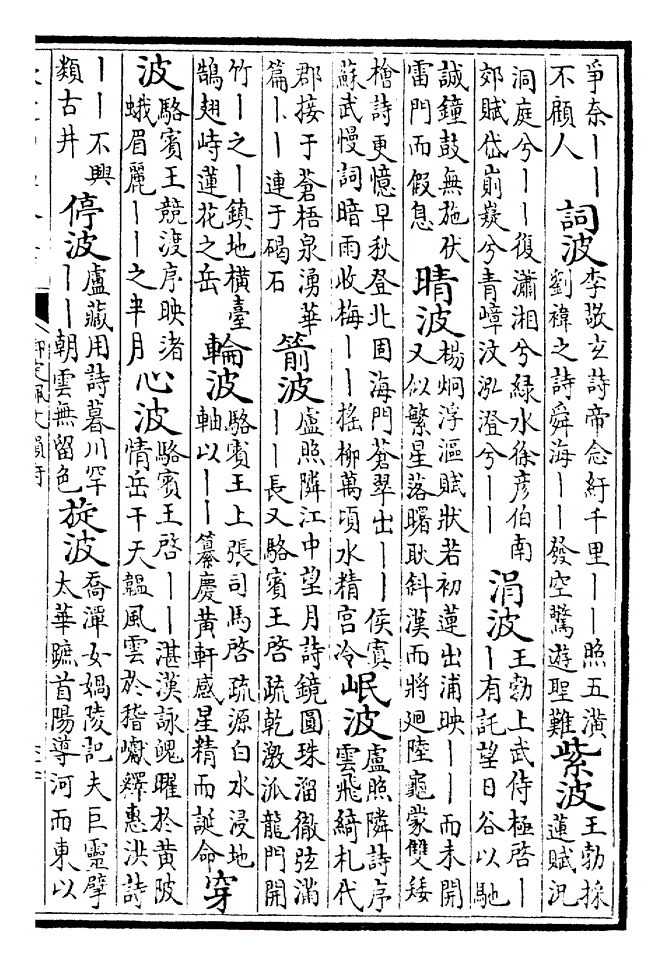 爭奈丨丨
不顧人
詞波
李敬玄詩帝念紆千里丨丨照五潢
劉禕之詩舜海丨丨發空驚遊聖難
紫波
王勃採
蓮賦況
洞庭兮丨丨復瀟湘兮綠水徐彥伯南
郊賦岱崱嶷兮青嶂汶泓澄兮丨丨
涓波
王勃上武侍極啓丨
丨有託望日谷以馳
誠鐘鼓無施伏
雷門而假息
晴波
楊炯浮漚賦狀若初蓮出浦映丨丨而未開
又似繁星落曙耿斜漢而將廻陸龜蒙雙矮
檜詩更憶早秋登北固海門蒼翠出丨丨侯寘
蘇武慢詞暗雨收梅丨丨搖柳萬頃水精宫冷
岷波
盧照隣詩序
雲飛綺札代
郡接于蒼梧泉湧華
篇丨丨連于碣石
箭波
盧照隣江中望月詩鏡圓珠溜徹弦滿
丨丨長又駱賓王啓疏乾激派龍門開
竹丨之丨鎮地橫臺
鵠翅峙蓮花之岳
輪波
駱賓王上張司馬啓疏源白水浸地
軸以丨丨纂慶黄軒感星精而誕命
穿
波
駱賓王競渡序映渚
蛾眉麗丨丨之半月
心波
駱賓王啓丨丨湛漢詠魄曜於黄陂
情岳干天韞風雲於稽巘釋惠洪詩
丨丨不興
類古井
停波
盧藏用詩暮川罕
丨丨朝雲無留色
旋波
喬潭女媧陵記夫巨靈擘
太華蹠首陽導河而東以